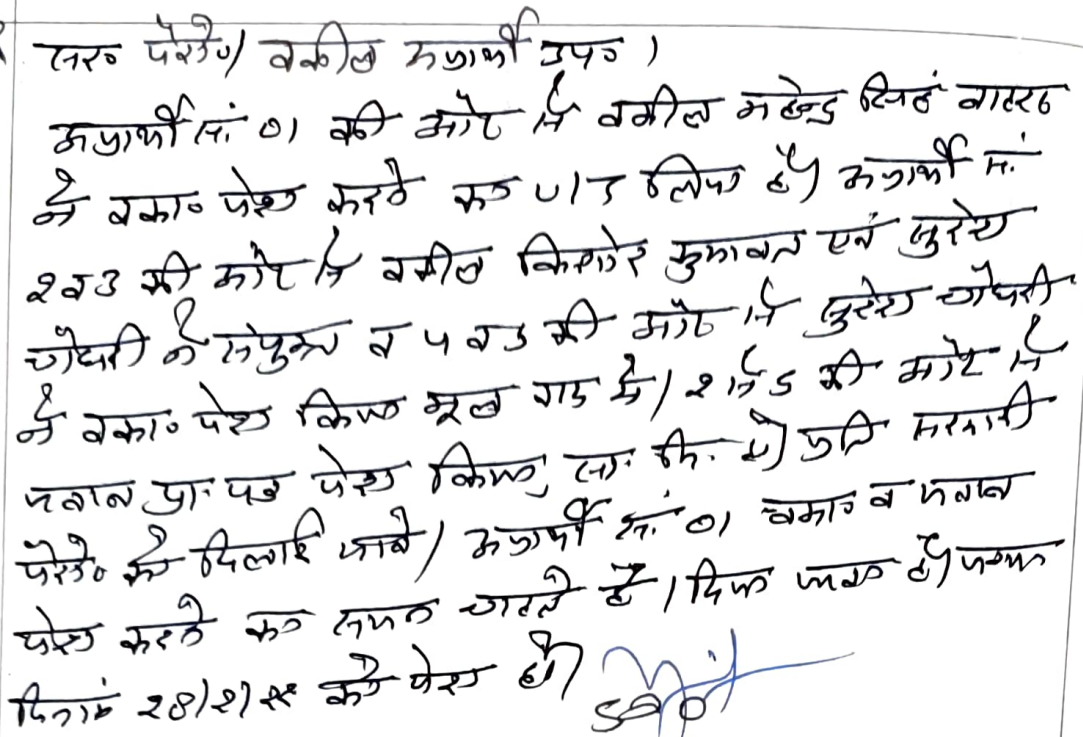 सर० पैरो०/ वकील अप्रार्थी उप०।
अप्रार्थी सं. 01 की ओर से वकील महेन्द्र सिंह
ने वका० पेश करने का U/T लिया है। अप्रार्थी सं.
2 व 3 की ओर से वकील किशोर कुमावत एवं सुरेश
चौधरी ने संयुक्त व 4 व 5 की ओर से सुरेश चौधरी
ने वका० पेश किया मूल वाद में। 2 से 5 की ओर से
जवाब प्रा. पत्र पेश किया, सा. मि. हो। प्रति सरकारी
पैरो० को दिलाई जावे। अप्रार्थी सं. 01 वका० व जवाब
पेश करने का समय चाहते है। दिया जाता है।
दिनांक 28/2/22 को पेश हो।
SDO